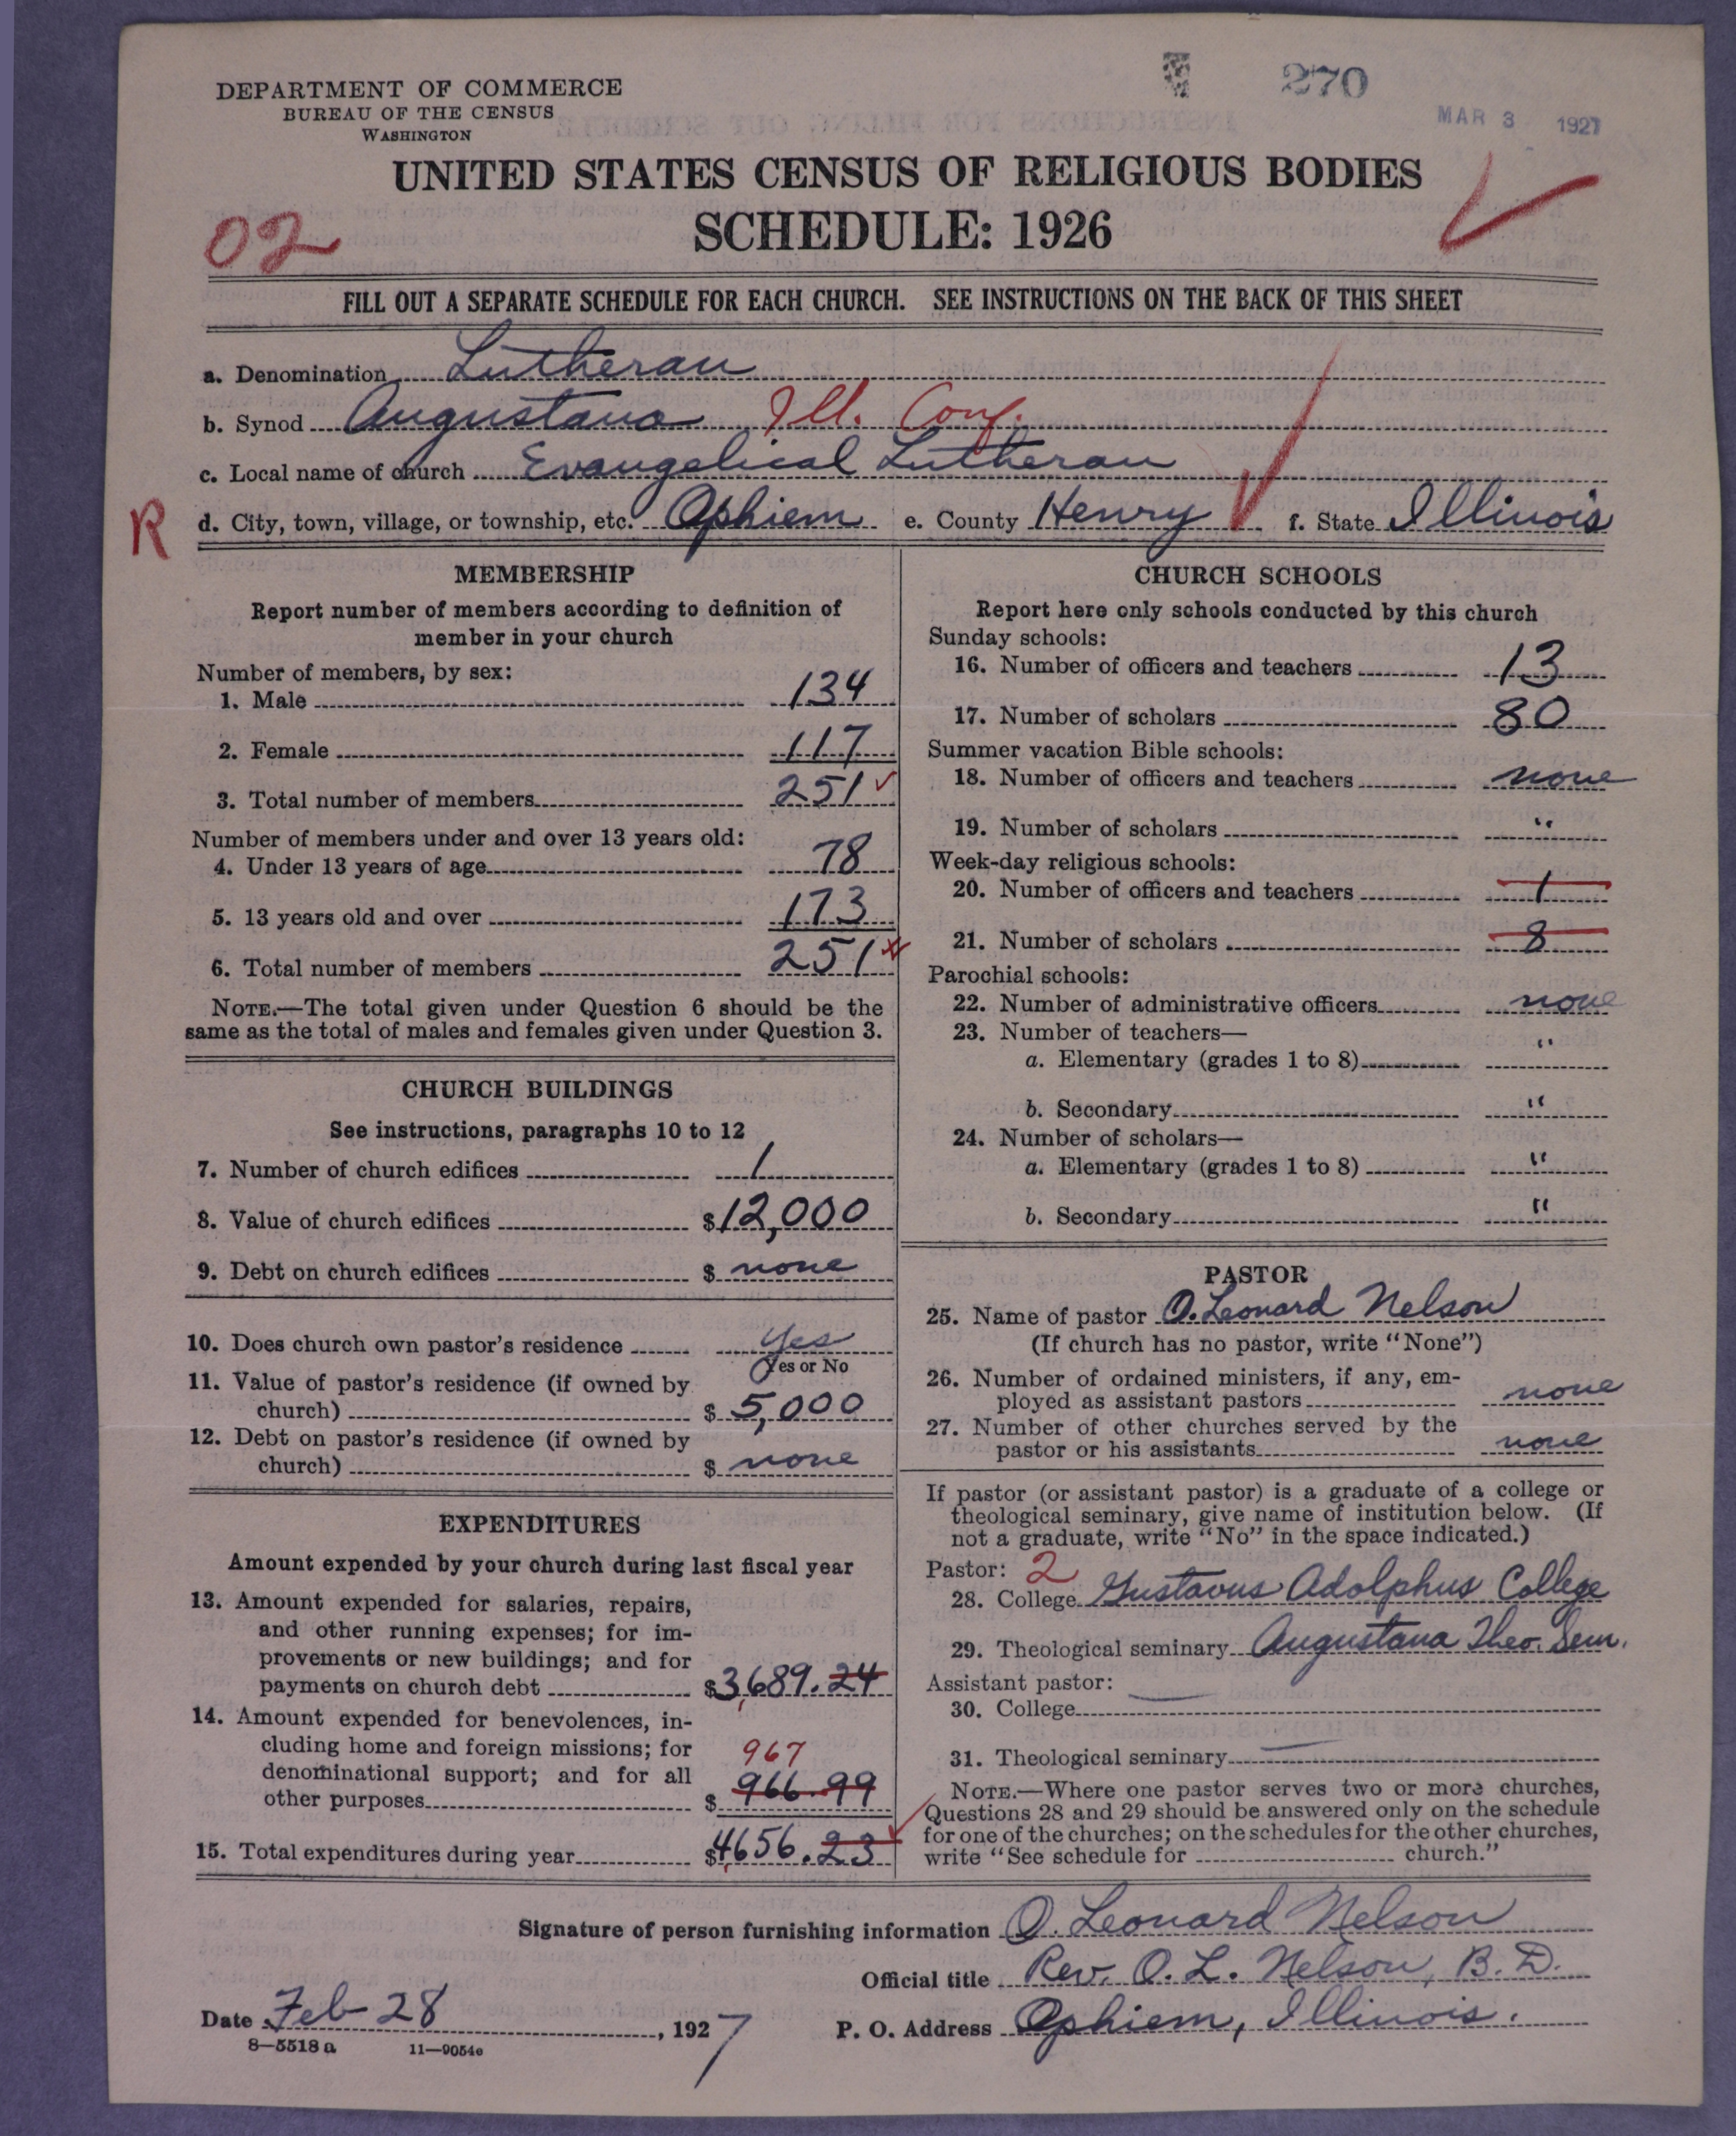 270
MAR 3 1927
DEPARTMENT OF COMMERCE
BUREAU OF THE CENSUS
WASHINGTON
UNITED STATES CENSUS OF RELIGIOUS BODIES
SCHEDULE: 1926
02
FILL OUT A SEPARATE SCHEDULE FOR EACH CHURCH. SEE INSTRUCTIONS ON THE BACK OF THIS SHEET
a. Denomination Lutheran
b. Synod Augustana Ill. Conf.
c. Local name of church Evangelical Lutheran
R
d. City, town, village, or township, etc. Ophiem e. County Henry f. State Illinois
MEMBERSHIP
Report number of members according to definition of
member in your church
Number of members, by sex:
1. Male 134
2. Female 117
3. Total number of members 251
Number of members under and over 13 years old:
4. Under 13 years of age 78
5. 13 years old and over 173
6. Total number of members 251
NOTE.—The total given under Question 6 should be the
same as the total of males and females given under Question 3.
CHURCH BUILDINGS
See instructions, paragraphs 10 to 12
7. Number of church edifices 1
8. Value of church edifices $12,000
9. Debt on church edifices $ none
10. Does church own pastor's residence Yes
Yes or No
11. Value of pastor's residence (if owned by
church) $ 5,000
12. Debt on pastor's residence (if owned by
church) $ none
EXPENDITURES
Amount expended by your church during last fiscal year
13. Amount expended for salaries, repairs,
and other running expenses; for im-
provements or new buildings; and for
payments on church debt $3,689.24
14. Amount expended for benevolences, in-
cluding home and foreign missions; for 967
denominational support; and for all
other purposes $ 966.99
15. Total expenditures during year $4,656.23
CHURCH SCHOOLS
Report here only schools conducted by this church
Sunday schools:
16. Number of officers and teachers 13
17. Number of scholars 80
Summer vacation Bible schools:
18. Number of officers and teachers none
19. Number of scholars "
Week-day religious schools:
20. Number of officers and teachers 1
21. Number of scholars 8
Parochial schools:
22. Number of administrative officers none
23. Number of teachers—
a. Elementary (grades 1 to 8) "
b. Secondary "
24. Number of scholars—
a. Elementary (grades 1 to 8) "
b. Secondary "
PASTOR
25. Name of pastor O. Leonard Nelson
(If church has no pastor, write "None")
26. Number of ordained ministers, if any, em-
ployed as assistant pastors none
27. Number of other churches served by the
pastor or his assistants none
If pastor (or assistant pastor) is a graduate of a college or
theological seminary, give name of institution below. (If
not a graduate, write "No" in the space indicated.)
Pastor: 2
28. College Gustavus Adolphus College
29. Theological seminary Augustana Theo. Sem.
Assistant pastor:
30. College
31. Theological seminary
NOTE.—Where one pastor serves two or more churches,
Questions 28 and 29 should be answered only on the schedule
for one of the churches; on the schedules for the other churches,
write "See schedule for church."
Signature of person furnishing information O. Leonard Nelson
Official title Rev. O. L. Nelson, B. D.
Date Feb 28, 1927 P. O. Address Ophiem, Illinois.
8—5518 a 11—9054e